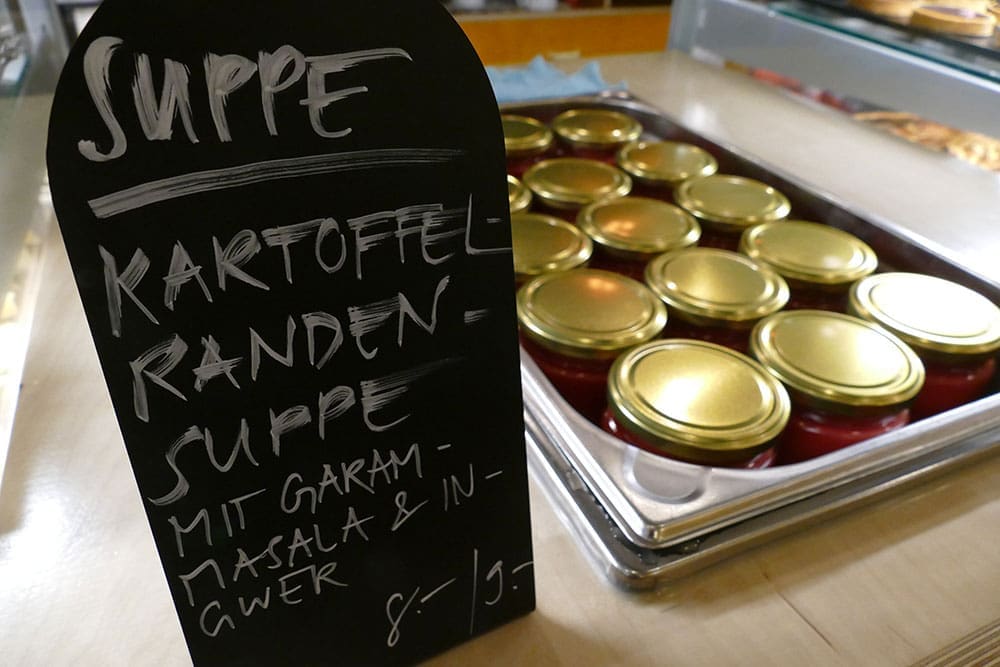 SUPPE
KARTOFFEL-
RANDEN-
SUPPE
MIT GARAM-
MASALA & IN-
GWER
8.- / 9.-